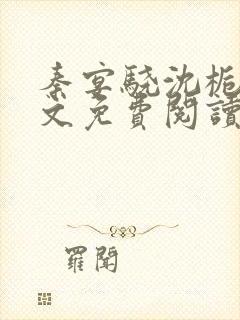 秦宴驍沈栀
文免費閱讀
羅閒